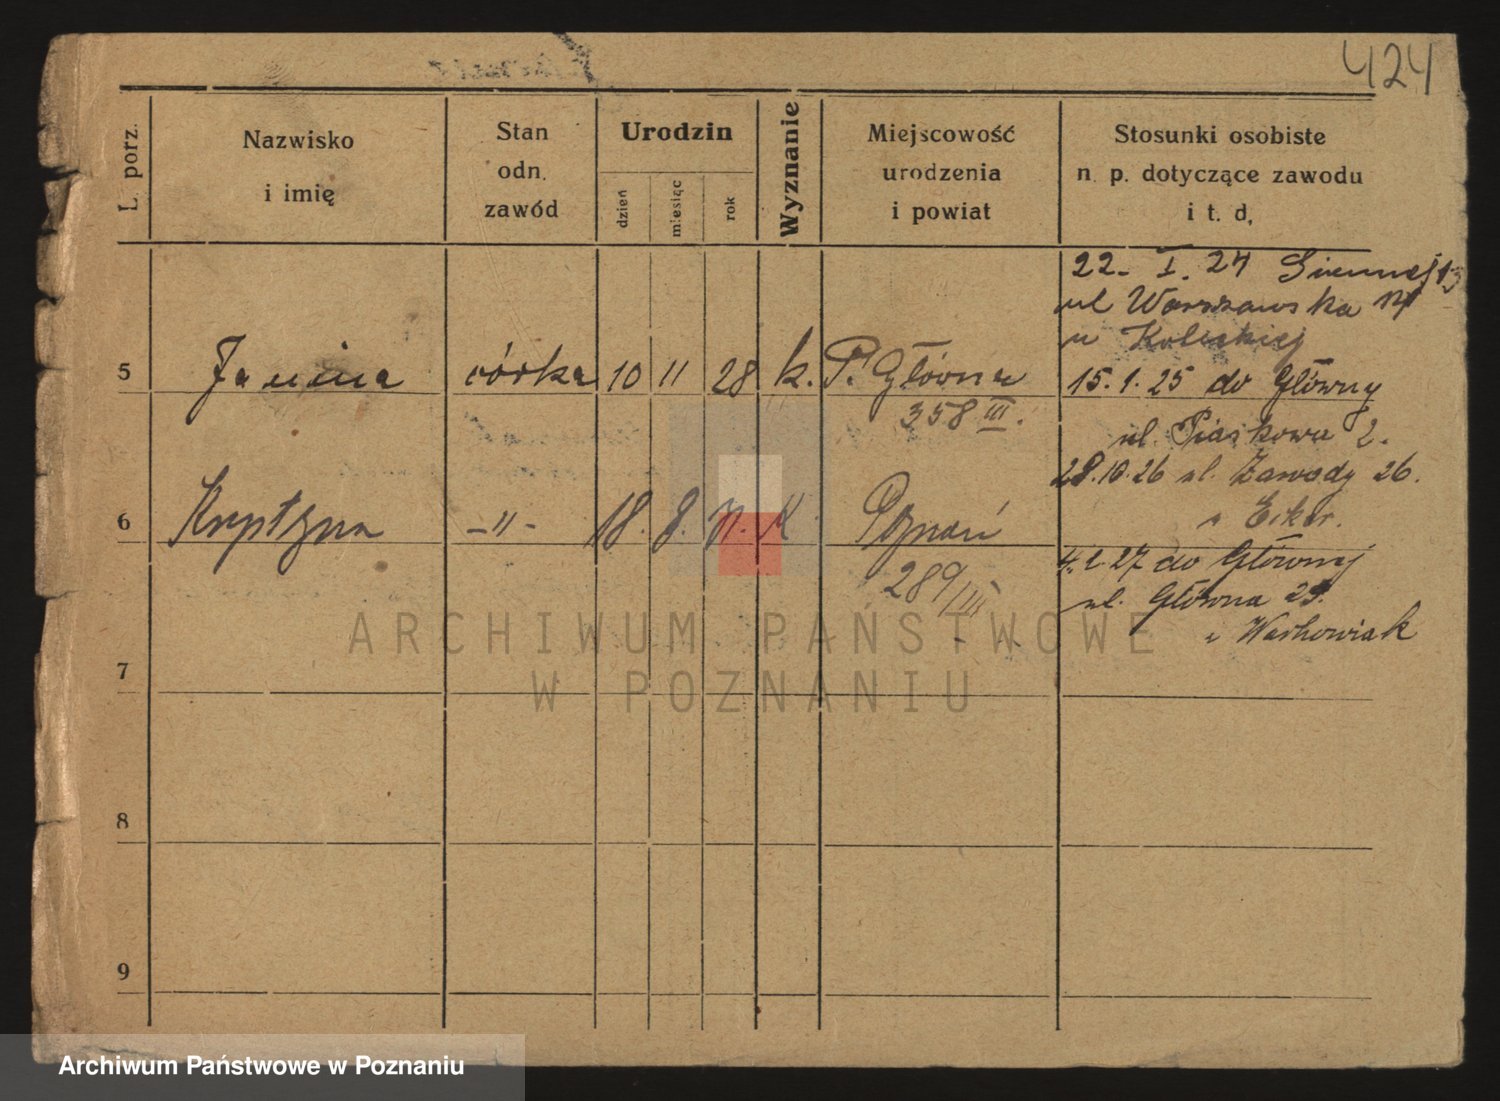 424
L. porz.
Nazwisko
i imię
Stan
odn.
zawód
Urodzin
dzień
miesiąc
rok
Wyznanie
Miejscowość
urodzenia
i powiat
Stosunki osobiste
n. p. dotyczące zawodu
i t. d.
22. I. 24
ul Warszawska
u
5 Janina córka 10 11 28 k. P. Główna
358 III.
15.1.25 do Główny
ul. Piaskowa 2.
28.10.26 ul. Zawady 26.
6 Krystyna -"- 18. 8. K Poznań
289/III
do Głównej
ul. Główna
7
8
9
ARCHIWUM PAŃSTWOWE
W POZNANIU
Archiwum Państwowe w Poznaniu